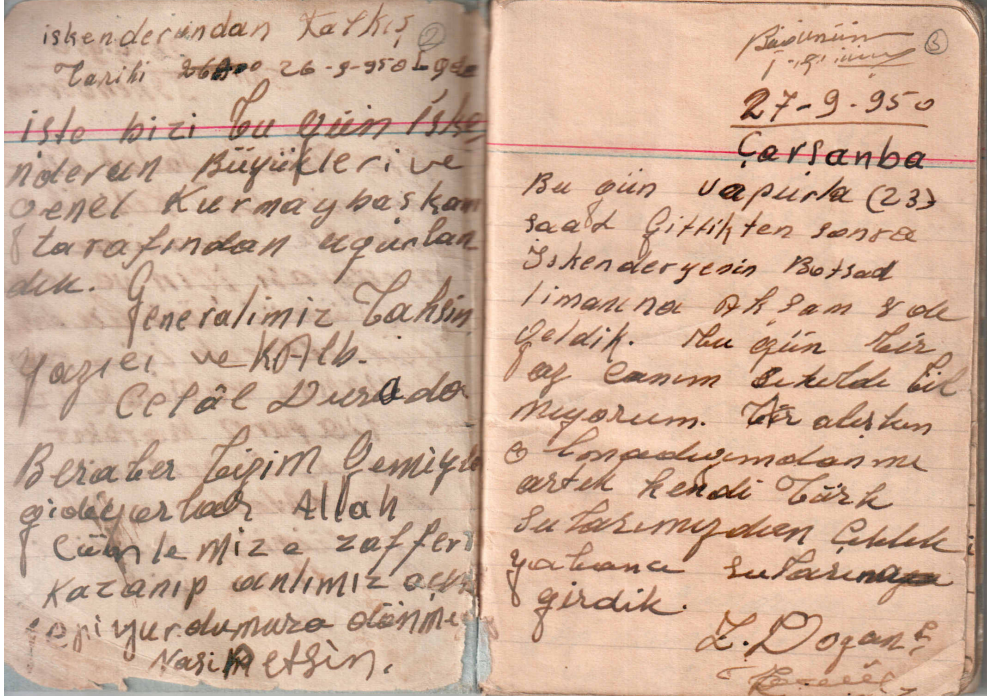 iskenderundan Kalkış
2
Tarihi 26-9-950
işte bizi bu gün İske
nderun Büyükleri ve
genel Kurmaybaşkanı
tarafından uğurlan
dık.
Generalimiz Tahsin
Yazıcı ve K Alb.
Celâl Dura da
Beraber bizim Gemiyle
gidiyorlar Allah
Cümlemize zafferi
Kazanıp anlımız açık
yurdumuza dönmeyi
Nasip etsin.
3
Bugünün
27-9-950
Çarşanba
Bu gün vapurla (23)
saat Gittikten sonra
İskenderyenin Botsad
limanına Akşam 8 de
geldik. bu gün bir
az canım sıkıldı bil
miyorum. bir alışkın
olmadığımdanmı
artık kendi Türk
sularımızdan Çıktık
yabancı sularına
girdik.
Z. Doğan